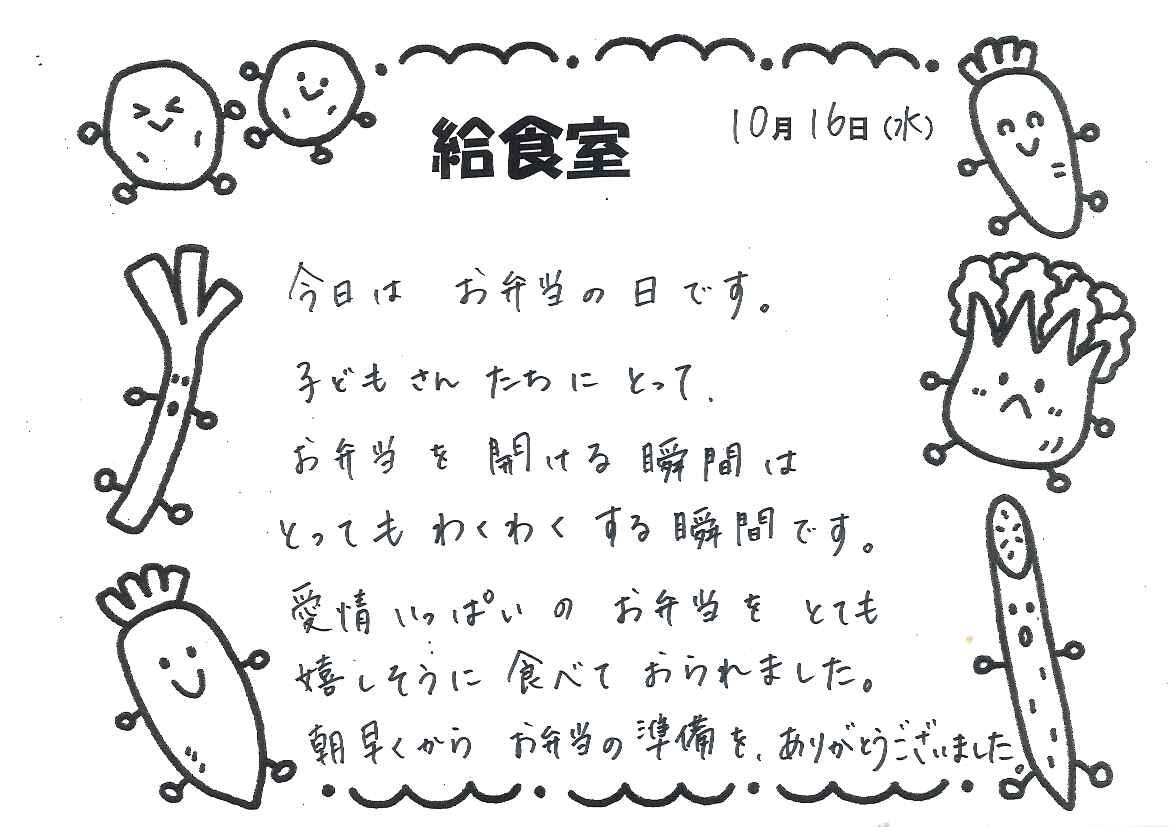 給食室
10月16日(水)
今日は お弁当の日です。
子どもさんたちにとって、
お弁当を開ける瞬間は
とってもわくわくする瞬間です。
愛情いっぱいのお弁当を とても
嬉しそうに食べておられました。
朝早くからお弁当の準備を、ありがとうございました。